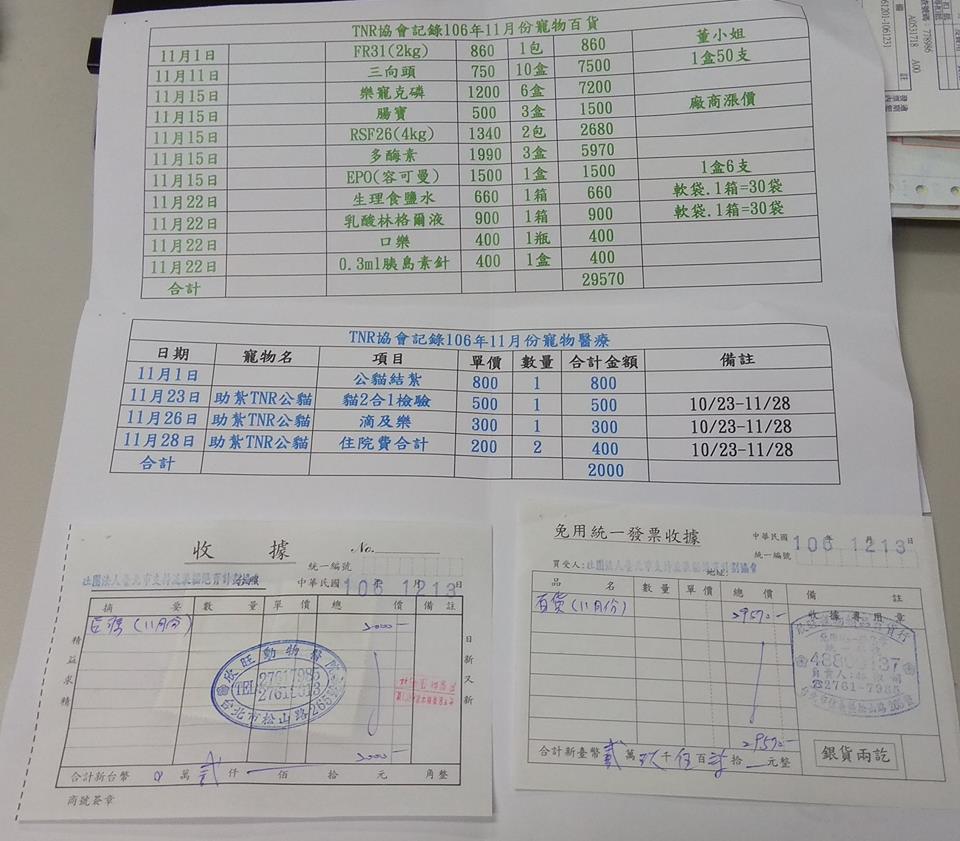 TNR協會記錄106年11月份寵物百貨
11月1日 FR31(2kg) 860 1包 860 董小姐
11月11日 三向頭 750 10盒 7500 1盒50支
11月15日 樂寵克磷 1200 6盒 7200
11月15日 腸寶 500 3盒 1500 廠商漲價
11月15日 RSF26(4kg) 1340 2包 2680
11月15日 多酶素 1990 3盒 5970
11月15日 EPO(容可曼) 1500 1盒 1500 1盒6支
11月22日 生理食鹽水 660 1箱 660 軟袋.1箱=30袋
11月22日 乳酸林格爾液 900 1箱 900 軟袋.1箱=30袋
11月22日 口樂 400 1瓶 400
11月22日 0.3ml胰島素針 400 1盒 400
合計 29570
TNR協會記錄106年11月份寵物醫療
日期 寵物名 項目 單價 數量 合計金額 備註
11月1日 公貓結紮 800 1 800
11月23日 助紮TNR公貓 貓2合1檢驗 500 1 500 10/23-11/28
11月26日 助紮TNR公貓 滴及樂 300 1 300 10/23-11/28
11月28日 助紮TNR公貓 住院費合計 200 2 400 10/23-11/28
合計 2000
收據 No.
統一編號
社團法人臺北市支持流浪貓絕育計劃協會
中華民國106年12月13日
摘要 數量 單價 總價 備註
(11月份) 2000-
精益求精
日新又新
欣旺動物醫院
TEL 27617985
台北市松山路265號
2000-
合計新台幣 萬貳仟 佰 拾 元 角整
商號簽章
免用統一發票收據
中華民國106年12月13日
統一編號
買受人:社團法人臺北市支持流浪貓絕育計劃協會
地址:
品名 數量 單價 總價 備註
百貨(11月份) 29570-
收據專用章
☎2761-7985
29570-
合計新臺幣貳萬玖千伍百 拾 元整
銀貨兩訖
778986
A0531718 A00
061201-1061231